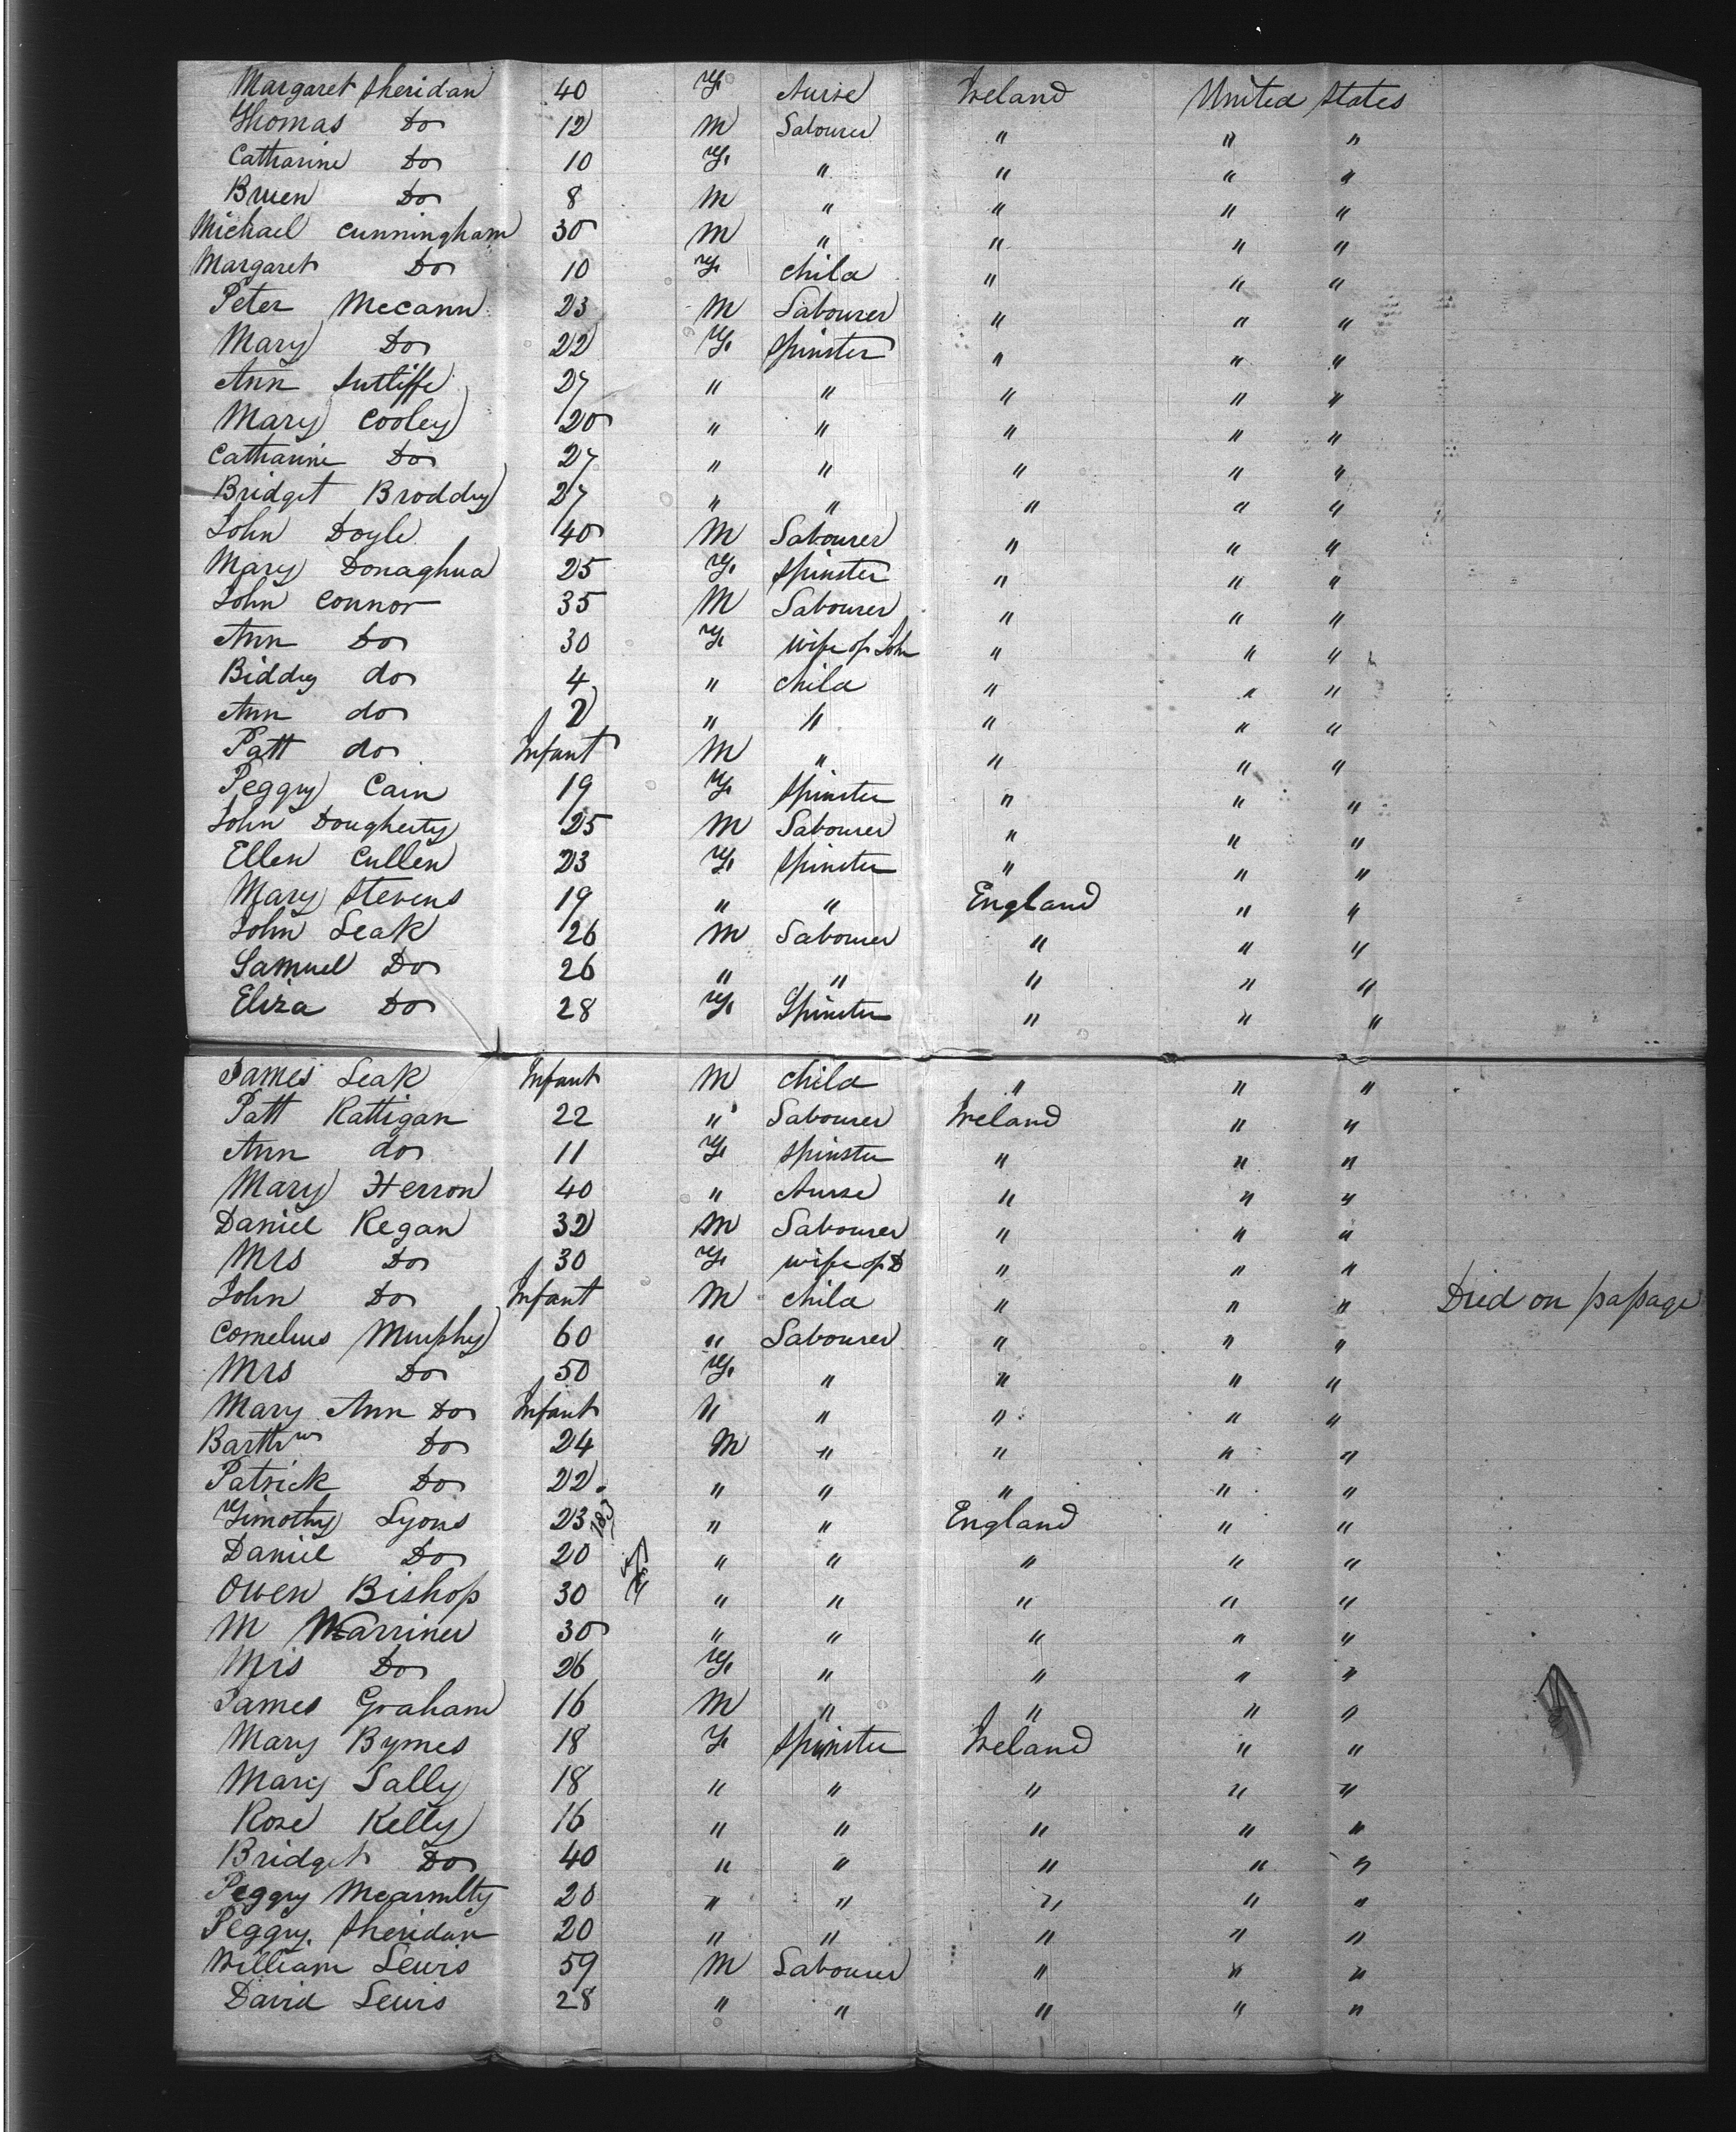 Margaret Sheridan 40 F Nurse Ireland United States
Thomas Do 12 M Labourer " " "
Catharine Do 10 F. " " " "
Bruen Do 8 M " " " "
Michael Cunningham 30 M " " " "
Margaret Do 10 F child " " "
Peter Mccann 23 M Labourer " " "
Mary Do 22 F. Spinster " " "
Ann Sutliffe 27 " " " " "
Mary Cooley 20 " " " " "
Catharine Do 27 " " " " "
Bridget Broddy 27 " " " " "
John Doyle 40 M Labourer " " "
Mary Donaghua 25 F. Spinster " " "
John Connor 35 M Labourer " " "
Ann Do 30 F wife of John " " "
Biddy do 4 " child " " "
Ann do 2 " " " " "
Patt do Infant M " " " "
Peggy Cain 19 F. Spinster " " "
John Dougherty 25 M Labourer " " "
Ellen Cullen 23 F. Spinster " " "
Mary Stevens 19 " " England " "
John Leak 26 M Labourer " " "
Samuel Do 26 " " " " "
Eliza Do 28 F. Spinster " " "
James Leak Infant M child " " "
Patt Rattigan 22 " Labourer Ireland " "
Ann do 11 F. Spinster " " "
Mary Herron 40 " Nurse " " "
Daniel Regan 32 M Labourer " " "
Mrs Do 30 F. wife of D " " "
John Do Infant M child " " " Died on passage
Cornelius Murphy 60 " Labourer " " "
Mrs Do 50 F. " " " "
Mary Ann Do Infant " " " " "
Barthw Do 24 M " " " "
Patrick Do 22. " " " " "
Timothy Lyons 23 " " England " "
Daniel Do 20 " " " " "
Owen Bishop 30 " " " " "
M Marriner 30 " " " " "
Mrs Do 26 F. " " " "
James Graham 16 M " " " "
Mary Byrnes 18 F Spinster Ireland " "
Mary Lally 18 " " " " "
Rose Kelly 16 " " " " "
Bridget Do 40 " " " " "
Peggy 20 " " " " "
Peggy. Sheridan 20 " " " " "
William Lewis 59 M Labourer " " "
David Lewis 28 " " " " "